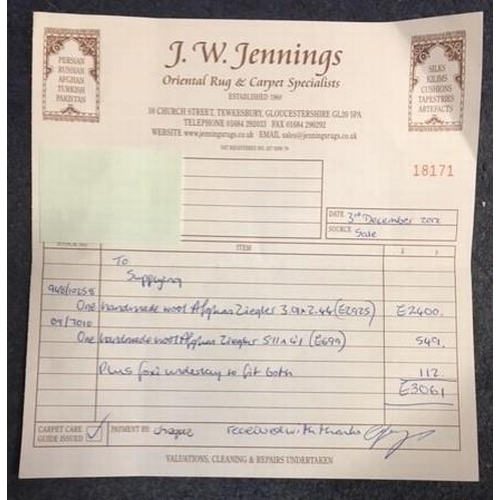 PERSIAN
RUSSIAN
AFGHAN
TURKISH
PAKISTAN
J. W. Jennings
Oriental Rug & Carpet Specialists
ESTABLISHED 1969
SILKS
KILIMS
CUSHIONS
TAPESTRIES
ARTEFACTS
10 CHURCH STREET, TEWKESBURY, GLOUCESTERSHIRE GL20 5PA
TELEPHONE 01684 292033 FAX 01684 290292
WEBSITE www.jenningsrugs.co.uk EMAIL sales@jenningsrugs.co.uk
VAT REGISTERED NO.
18171
DATE 3rd December 2012
SOURCE Sale
ITEM £ p
To
Supplying
One handmade wool Afghan Ziegler 3.01x2.44 (£2925) £2400.
04/7010
One handmade wool Afghan Ziegler 5'11 x 4'1 (£699) 549.
Plus foxi underlay to fit both 112.
£3061
CARPET CARE GUIDE ISSUED ✓ PAYMENT BY cheque received with thanks
VALUATIONS, CLEANING & REPAIRS UNDERTAKEN